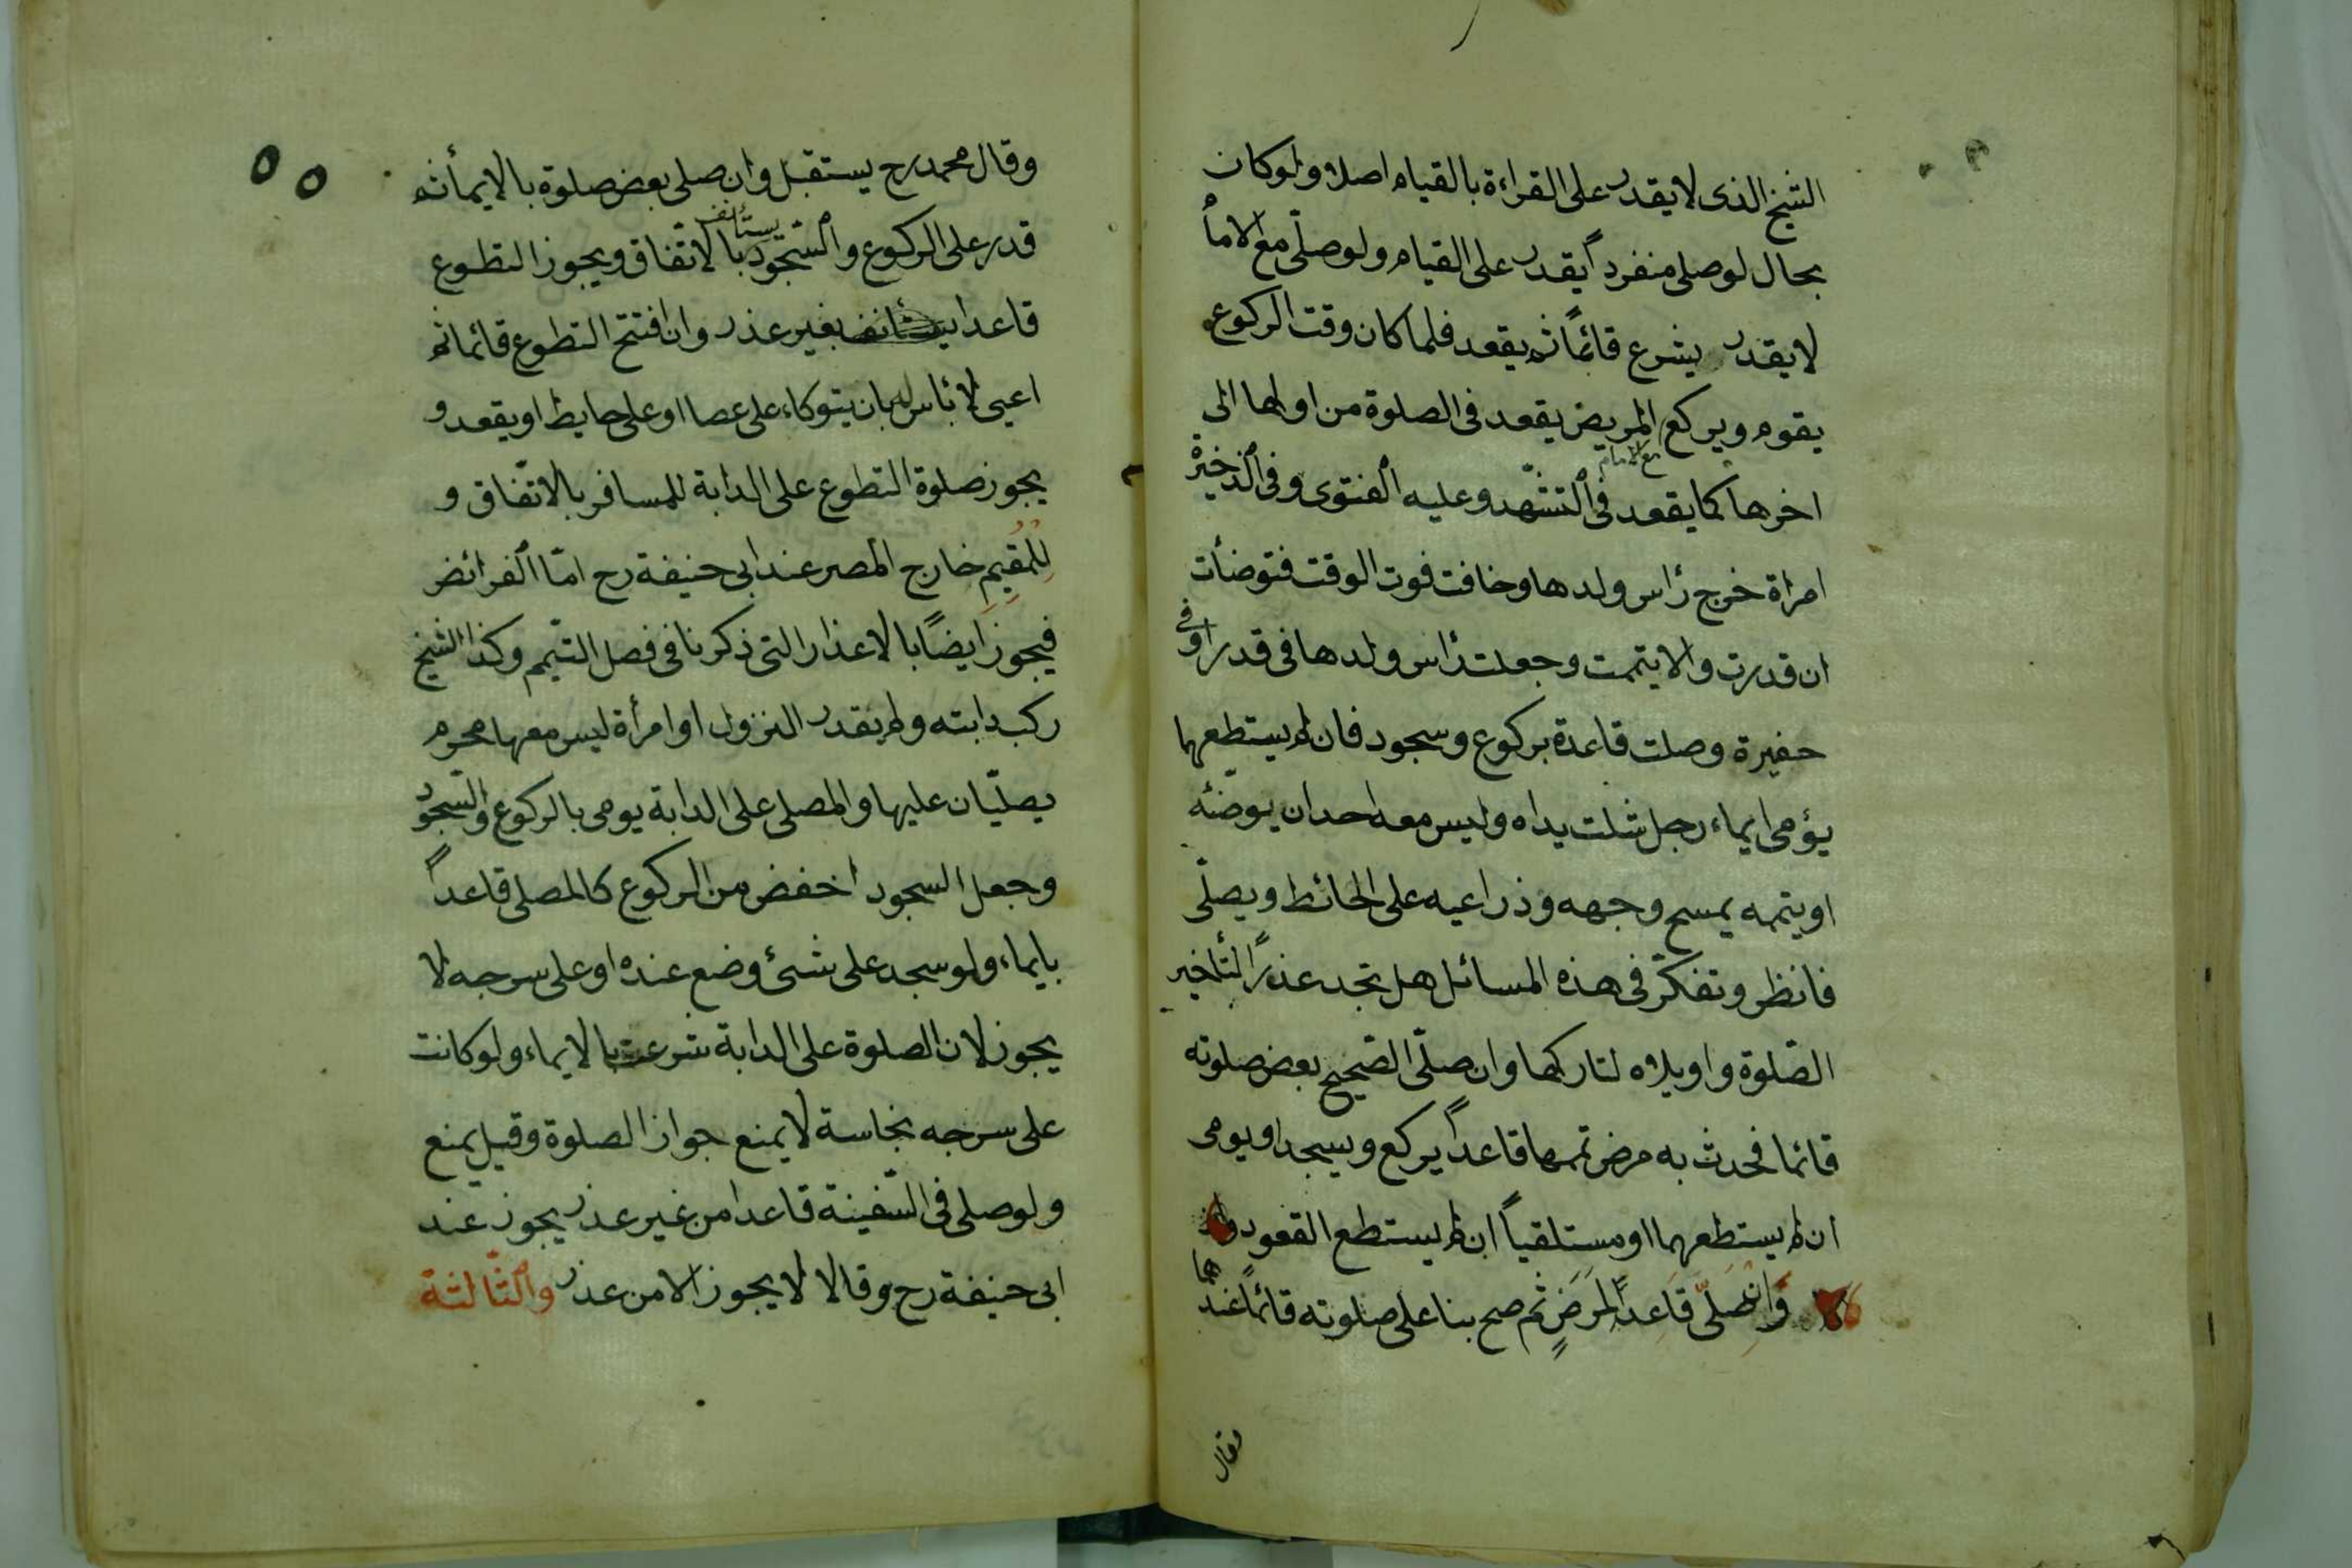 الشيخ الذى لا يقدر على القراءة بالقيام اصلا ولو كان
بحال لو صلى منفرداً يقدر على القيام ولو صلّى مع الامام
لا يقدر يشرع قائماً ثم يقعد فلما كان وقت الركوع
يقوم ويركع المريض يقعد فى الصلوة من اولها الى
مع الامام
اخرها كما يقعد فى التشهّد وعليه الفتوى وفى الذخيرة
امراة خرج رأس ولدها وخافت فوت الوقت فتوضأت
ان قدرت والا يتممت وجعلت رأس ولدها فى قدر او فى
حفيرة وصلت قاعدة بركوع وسجود فان لم يستطعهما
يؤمى ايماء رجل شلت يداه وليس معه احد ان يوضّئه
او يتممه يمسح وجهه وذراعيه على الحائط ويصلّى
فانظر وتفكّر فى هذه المسائل هل تجد عذراً لتأخير
الصّلوة واويلاه لتاركها وان صلّى الصّحيح بعض صلوته
قائما فحدث به مرض تمها قاعداً يركع ويسجد او يومى
ان لم يستطعهما او مستلقياً ان لم يستطع القعود
وَان صلىّ قَاعِداً لمرَضٍ ثم صح بنا على صلوته قائماً عندهما
وقال
٥٥
وقال محمد رح يستقبل وان صلى بعض صلوة بالايماء ثم
يستأنف
قدر على الركوع والسّجود بالاتّفاق ويجوز التطوع
قاعدا يستأنف بغير عذر وان افتتح التطوع قائما ثم
اعيى لا بأس له بان يتوكاء على عصا او على حايط او يقعد و
يجوز صلوة التطوع على الدابة للمسافر بالاتّفاق و
لِلمُقيِم خارج المصر عند ابى حنيفة رح امّا الفرائض
فيجوز ايضاً بالاعذار التى ذكرنا فى فصل التيّمم وكذا الشيخ
ركب دابته ولم يقدر النزول او امرأة ليس معها محرم
يصليّان عليها والمصلى على الدابة يومى بالركوع والسّجود
وجعل السجود اخفض من الركوع كالمصلى قاعداً
بايماء ولو سجد على شئ وضع عنده او على سرجه لا
يجوز لان الصلوة على الدابة شرعت بالايماء ولو كانت
على سرجه نجاسة لا يمنع جواز الصلوة وقيل يمنع
ولو صلى فى السّفينة قاعدا من غير عذر يجوز عند
ابى حنيفة رح وقالا لا يجوز الا من عذر والثّالثة